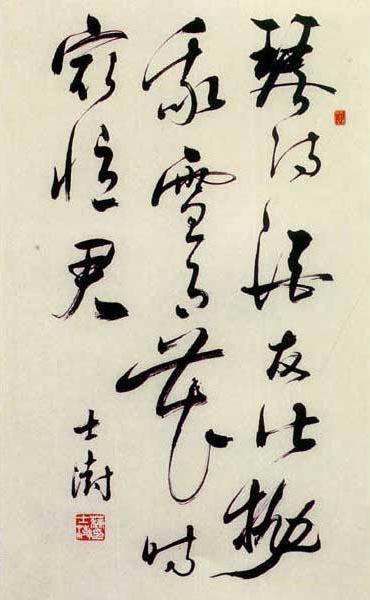 琴诗酒友皆抛
我雪月花时
最忆君
士澍